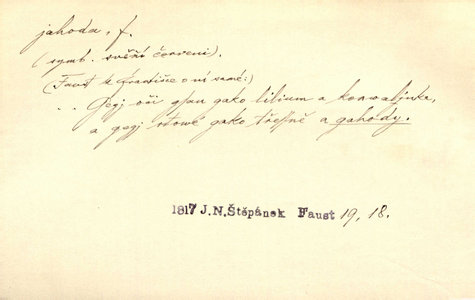 jahoda, f.
(symb. svěží červeni).
(Faust k Františce o ní samé:)
.. Gegj oči gsau gako lilium a konwaljnka,
a gegj rtowé gako třessně a gahody.
1817 J.N.Štěpánek Faust 19, 18.